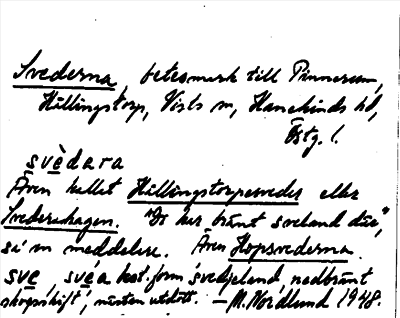 Svederna, betesmark till Pinnarum,
Hällingstorp, Vists sn, Hanekinds hd,
Östg. l.
svèdara
Även kallat Hällingstorpesvedes eller
Svederhagen. "De har bränt sveland där",
sa' m meddelare. Även Hopsvederna.
sve, svea best. form 'svedjeland, nedbränt
skogsskift', nästan utdött. — M. Nordlund 1948.